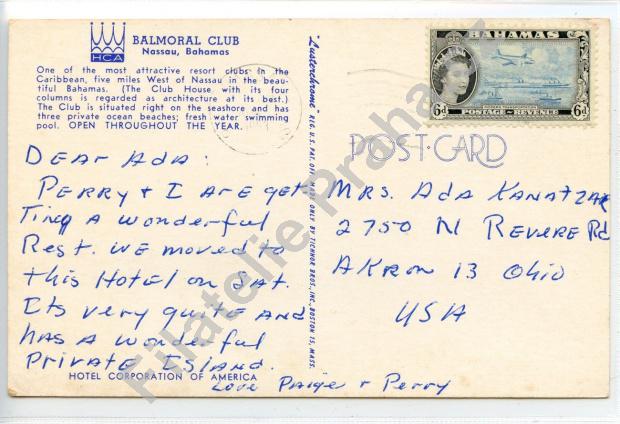 BALMORAL CLUB
Nassau, Bahamas
HCA
One of the most attractive resort clubs in the
Caribbean, five miles West of Nassau in the beau-
tiful Bahamas. (The Club House with its four
columns is regarded as architecture at its best.)
The Club is situated right on the seashore and has
three private ocean beaches; fresh water swimming
pool. OPEN THROUGHOUT THE YEAR.
DEAR ADA:
PERRY & I ARE get
Ting A wonderful
Rest. WE moved to
this Hotel on SAT.
Its very quite AND
HAS A wonderful
Private Island.
Love Paige & Perry
HOTEL CORPORATION OF AMERICA
"Lusterchrome" REG. U.S. PAT. OFF. MADE ONLY BY TICHNOR BROS., INC., BOSTON 15, MASS.
BAHAMAS
6d
POSTAGE REVENUE
6d
POST CARD
MRS. ADA KANATZAR
2750 N REVERE Rd
AKRON 13 OHIO
USA
Filatelie Praha